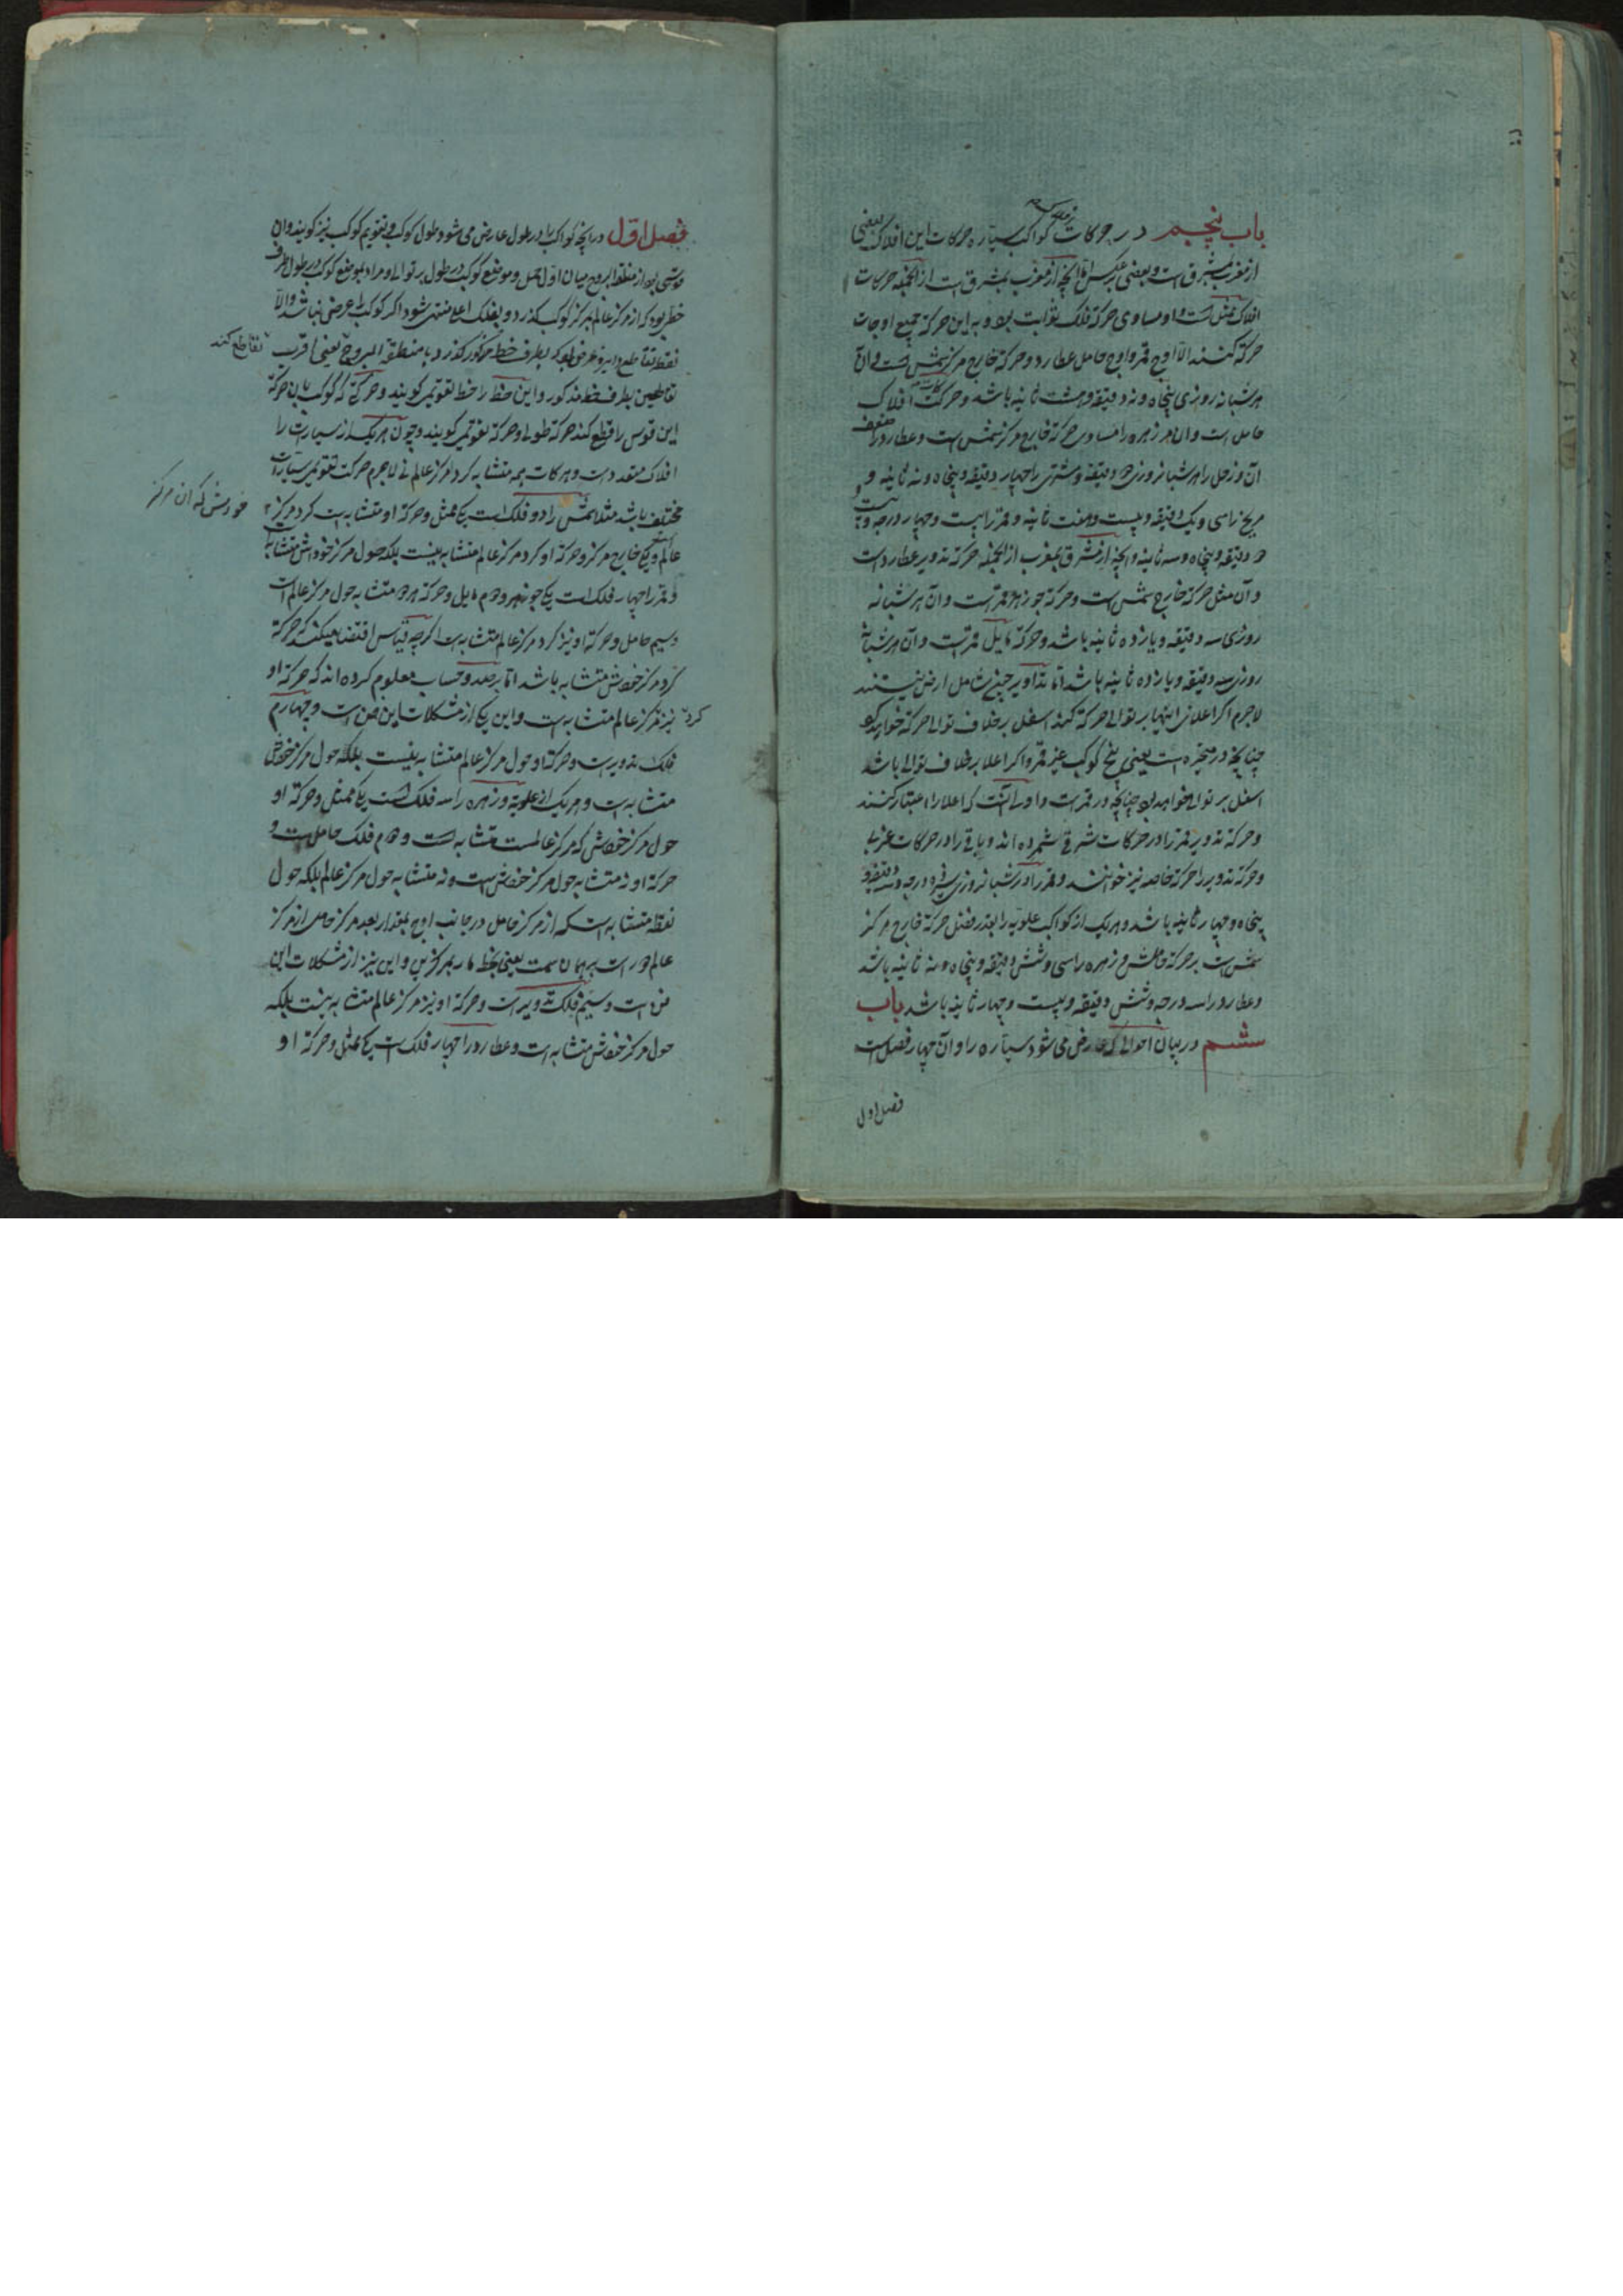 باب پنجم در حرکات کواکب سیاره حرکات این افلاک بعضی
از مغرب بمشرق است و بعضی برعکس امّا آنچه از مغرب بمشرق است از آنجمله حرکات
افلاک ممثل است و او مساوی حرکة فلک ثوابت بود و به این حرکة جمیع اوجات
حرکة کنند الّا اوج قمر و اوج حامل عطارد و حرکة خارج مرکز شمس است و آن
هر شبانه روزی پنجاه و نه دقیقه و هشت ثانیه باشد و حرکت افلاک
حامل است و آن مر زهره را مساوی حرکة خارج مرکز شمس است و عطارد را ضعف
آن و زحل را هر شبانروزی دو دقیقه و مشتری را چهار دقیقه و پنجاه و نه ثانیه و
مریخ را سی و یک دقیقه و بیست و هفت ثانیه و قمر را بیست و چهار درجه و بیست و
دو دقیقه و پنجاه و سه ثانیه و آنچه از مشرق بمغرب از آنجمله حرکة تدویر عطارد است
و آن مثل حرکة خارج شمس است و حرکة جوزهر قمر است و آن هر شبانه
روزی سه دقیقه و یازده ثانیه باشد و حرکة مایل قمر است و آن هر شبانه
روزی دقیقه و یازده ثانیه باشد امّا تداویر چون شامل ارض نیستند
لاجرم اگر اعلای اینها بر توالی حرکة کند اسفل برخلاف توالی حرکة خواهد کرد
چنانچه در متحیره است یعنی پنج کوکب غیر قمر و اگر اعلا برخلاف توالی باشد
اسفل بر توالی خواهد بود چنانچه در قمر است و اولی آنست که اعلا را اعتبار کنند
و حرکة تدویر قمر را در حرکات شرقی شمرده اند و باقی را در حرکات غربی
و حرکة تدویر را حرکة خاصه نیز خوانند و قمر را در شبانروزی سیزده درجه و سه دقیقه و
پنجاه و چهار ثانیه باشد و هریک از کواکب علویه را بقدر فضل حرکة خارج مرکز
شمس است بر حرکة حاملش و زهره را سی و شش دقیقه و پنجاه و نه ثانیه باشد
و عطارد را سه درجه و شش دقیقه و بیست و چهار ثانیه باشد باب
ششم در بیان احوالی که عارض می شود سیّاره را و آن چهار فصل است
فصل اول
فصل اول در آنچه کواکب را در طول عارض می شود طول کوکب و تقویم کوکب نیز گویند و آن
قوسی بود از منطقة البروج میان اول حمل و موضع کوکب در طول بر توالی و مراد بموضع کوکب در طول طرف
خطی بود که از مرکز عالم بمرکز کوکب گذرد و بفلک اعلی منتهی شود اگر کوکب را عرضی نباشد و الّا
نقطه تقاطع دایره عرضی بود که بطرف خط مذکور گذرد با منطقة البروج یعنی اقرب
تقاطع کند
تقاطعین بطرف خط مذکور و این خط را خط تقویمی گویند و حرکتی که کوکب بان حرکة
این قوس را قطع کند حرکة طولی و حرکة تقویمی گویند و چون هریک از سیارات را
افلاک متعدد است و حرکات همه متشابه گرد مرکز عالم نی لاجرم حرکت تقویمی سیّارات
مختلف باشد مثلا شمس را دو فلک است یکی ممثل و حرکة او متشابه است گرد مرکز
خودش که آن مرکز
عالم است و یکی خارج مرکز و حرکة او گرد مرکز عالم متشابه نیست بلکه حول مرکز خودش متشابه است
و قمر را چهار فلک است یکی جوزهر و دوم مایل و حرکة هر دو متشابه حول مرکز عالم است
و سیم حامل و حرکة او نیز گرد مرکز عالم متشابه است اگرچه قیاس اقتضا میکند که حرکة
گرد مرکز خودش متشابه باشد امّا برصد و حساب معلوم کرده اند که حرکة او
گرد
نیز مرکز عالم متشابه است و این یکی از مشکلات این فن است و چهارم
فلک تدویر است و حرکة او حول مرکز عالم متشابه نیست بلکه حول مرکز خودش
متشابه است و هریک از علویه و زهره را سه فلک است یکی ممثل و حرکة او
حول مرکز خودش که مرکز عالمست متشابه است و دوم فلک حامل است و
حرکة او نه متشابه حول مرکز خودش است و نه متشابه حول مرکز عالم بلکه حول
نقطه متشابه است که از مرکز حامل در جانب اوج بمقدار بعد مرکز حامل از مرکز
عالم دور است بر همان سمت یعنی بخط مار بمرکزین و این نیز از مشکلات این
فن است و سیم فلک تدویر است و حرکة او نیز مرکز عالم متشابه نیست بلکه
حول مرکز خودش متشابه است و عطارد را چهار فلک است یکی ممثل و حرکة او